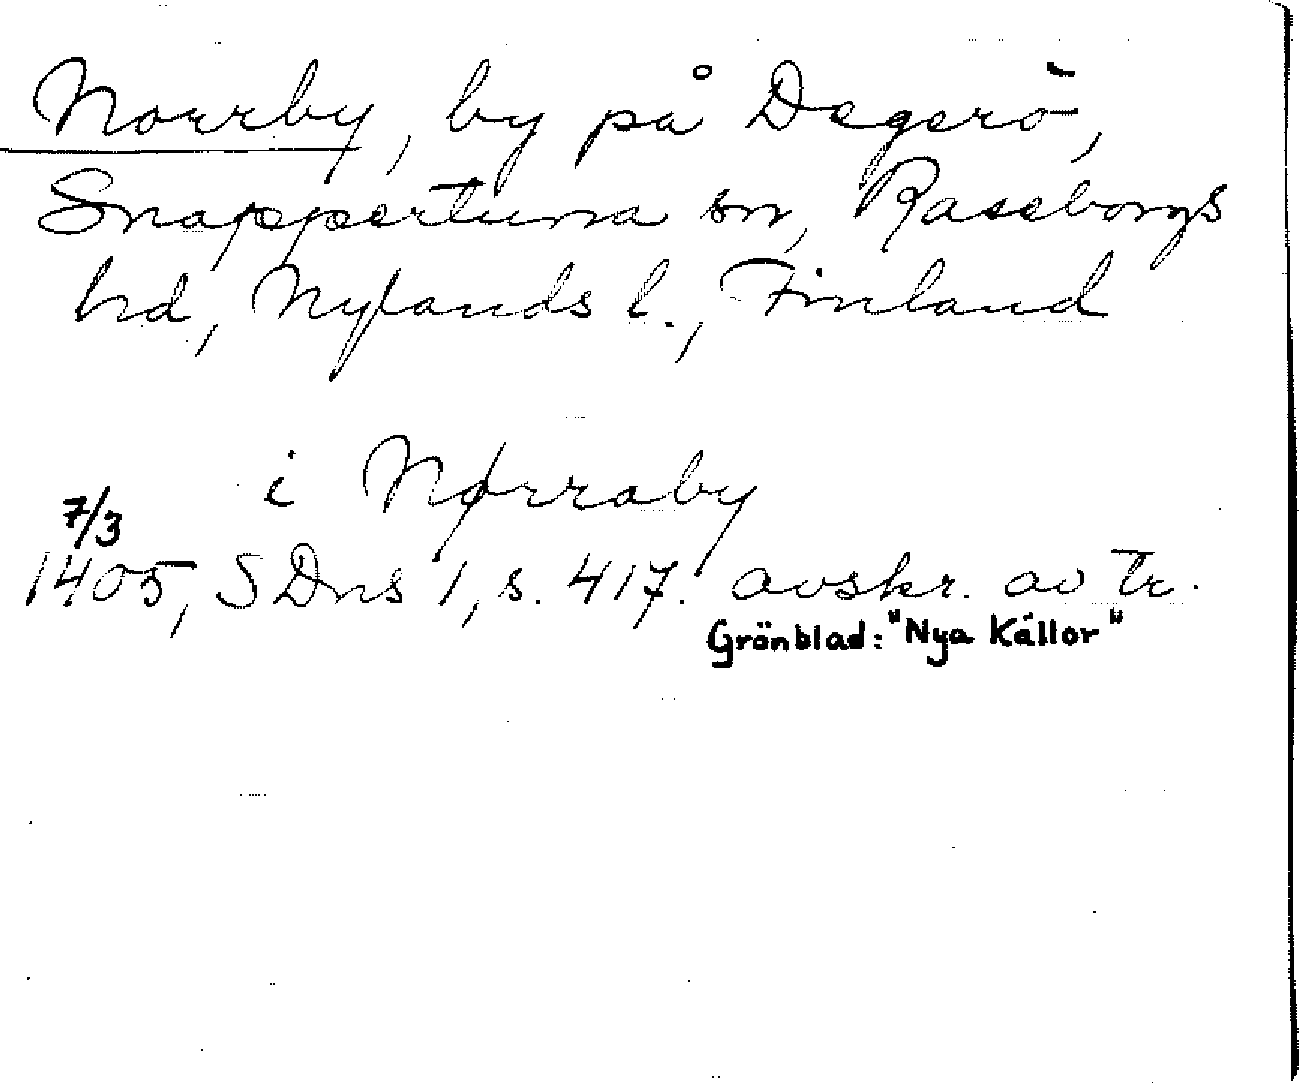 Norrby, by på Degerö,
Snappertuna sn, Raseborgs
hd, Nylands l., Finland
i Nørraby
7/3
1405, SDns 1, s. 417. avskr. av tr.
Grönblad: "Nya Källor"